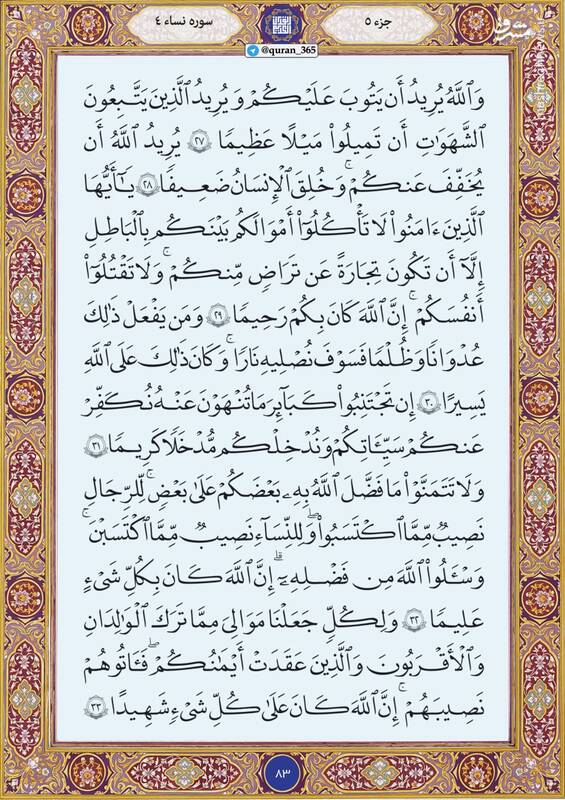 جزء ۵
سوره نساء ۴
@quran_365
وَٱللَّهُ يُرِيدُ أَن يَتُوبَ عَلَيۡكُمۡ وَيُرِيدُ ٱلَّذِينَ يَتَّبِعُونَ
ٱلشَّهَوَٰتِ أَن تَمِيلُواْ مَيۡلًا عَظِيمٗا ۲۷ يُرِيدُ ٱللَّهُ أَن
يُخَفِّفَ عَنكُمۡۚ وَخُلِقَ ٱلۡإِنسَٰنُ ضَعِيفٗا ۲۸ يَٰٓأَيُّهَا
ٱلَّذِينَ ءَامَنُواْ لَا تَأۡكُلُوٓاْ أَمۡوَٰلَكُم بَيۡنَكُم بِٱلۡبَٰطِلِ
إِلَّآ أَن تَكُونَ تِجَٰرَةً عَن تَرَاضٖ مِّنكُمۡۚ وَلَا تَقۡتُلُوٓاْ
أَنفُسَكُمۡۚ إِنَّ ٱللَّهَ كَانَ بِكُمۡ رَحِيمٗا ۲۹ وَمَن يَفۡعَلۡ ذَٰلِكَ
عُدۡوَٰنٗا وَظُلۡمٗا فَسَوۡفَ نُصۡلِيهِ نَارٗاۚ وَكَانَ ذَٰلِكَ عَلَى ٱللَّهِ
يَسِيرًا ۳۰ إِن تَجۡتَنِبُواْ كَبَآئِرَ مَا تُنۡهَوۡنَ عَنۡهُ نُكَفِّرۡ
عَنكُمۡ سَيِّـَٔاتِكُمۡ وَنُدۡخِلۡكُم مُّدۡخَلٗا كَرِيمٗا ۳۱
وَلَا تَتَمَنَّوۡاْ مَا فَضَّلَ ٱللَّهُ بِهِۦ بَعۡضَكُمۡ عَلَىٰ بَعۡضٖۚ لِّلرِّجَالِ
نَصِيبٞ مِّمَّا ٱكۡتَسَبُواْۖ وَلِلنِّسَآءِ نَصِيبٞ مِّمَّا ٱكۡتَسَبۡنَۚ
وَسۡـَٔلُواْ ٱللَّهَ مِن فَضۡلِهِۦٓۗ إِنَّ ٱللَّهَ كَانَ بِكُلِّ شَيۡءٍ
عَلِيمٗا ۳۲ وَلِكُلّٖ جَعَلۡنَا مَوَٰلِيَ مِمَّا تَرَكَ ٱلۡوَٰلِدَانِ
وَٱلۡأَقۡرَبُونَۚ وَٱلَّذِينَ عَقَدَتۡ أَيۡمَٰنُكُمۡ فَـَٔاتُوهُمۡ
نَصِيبَهُمۡۚ إِنَّ ٱللَّهَ كَانَ عَلَىٰ كُلِّ شَيۡءٖ شَهِيدًا ۳۳
۸۳